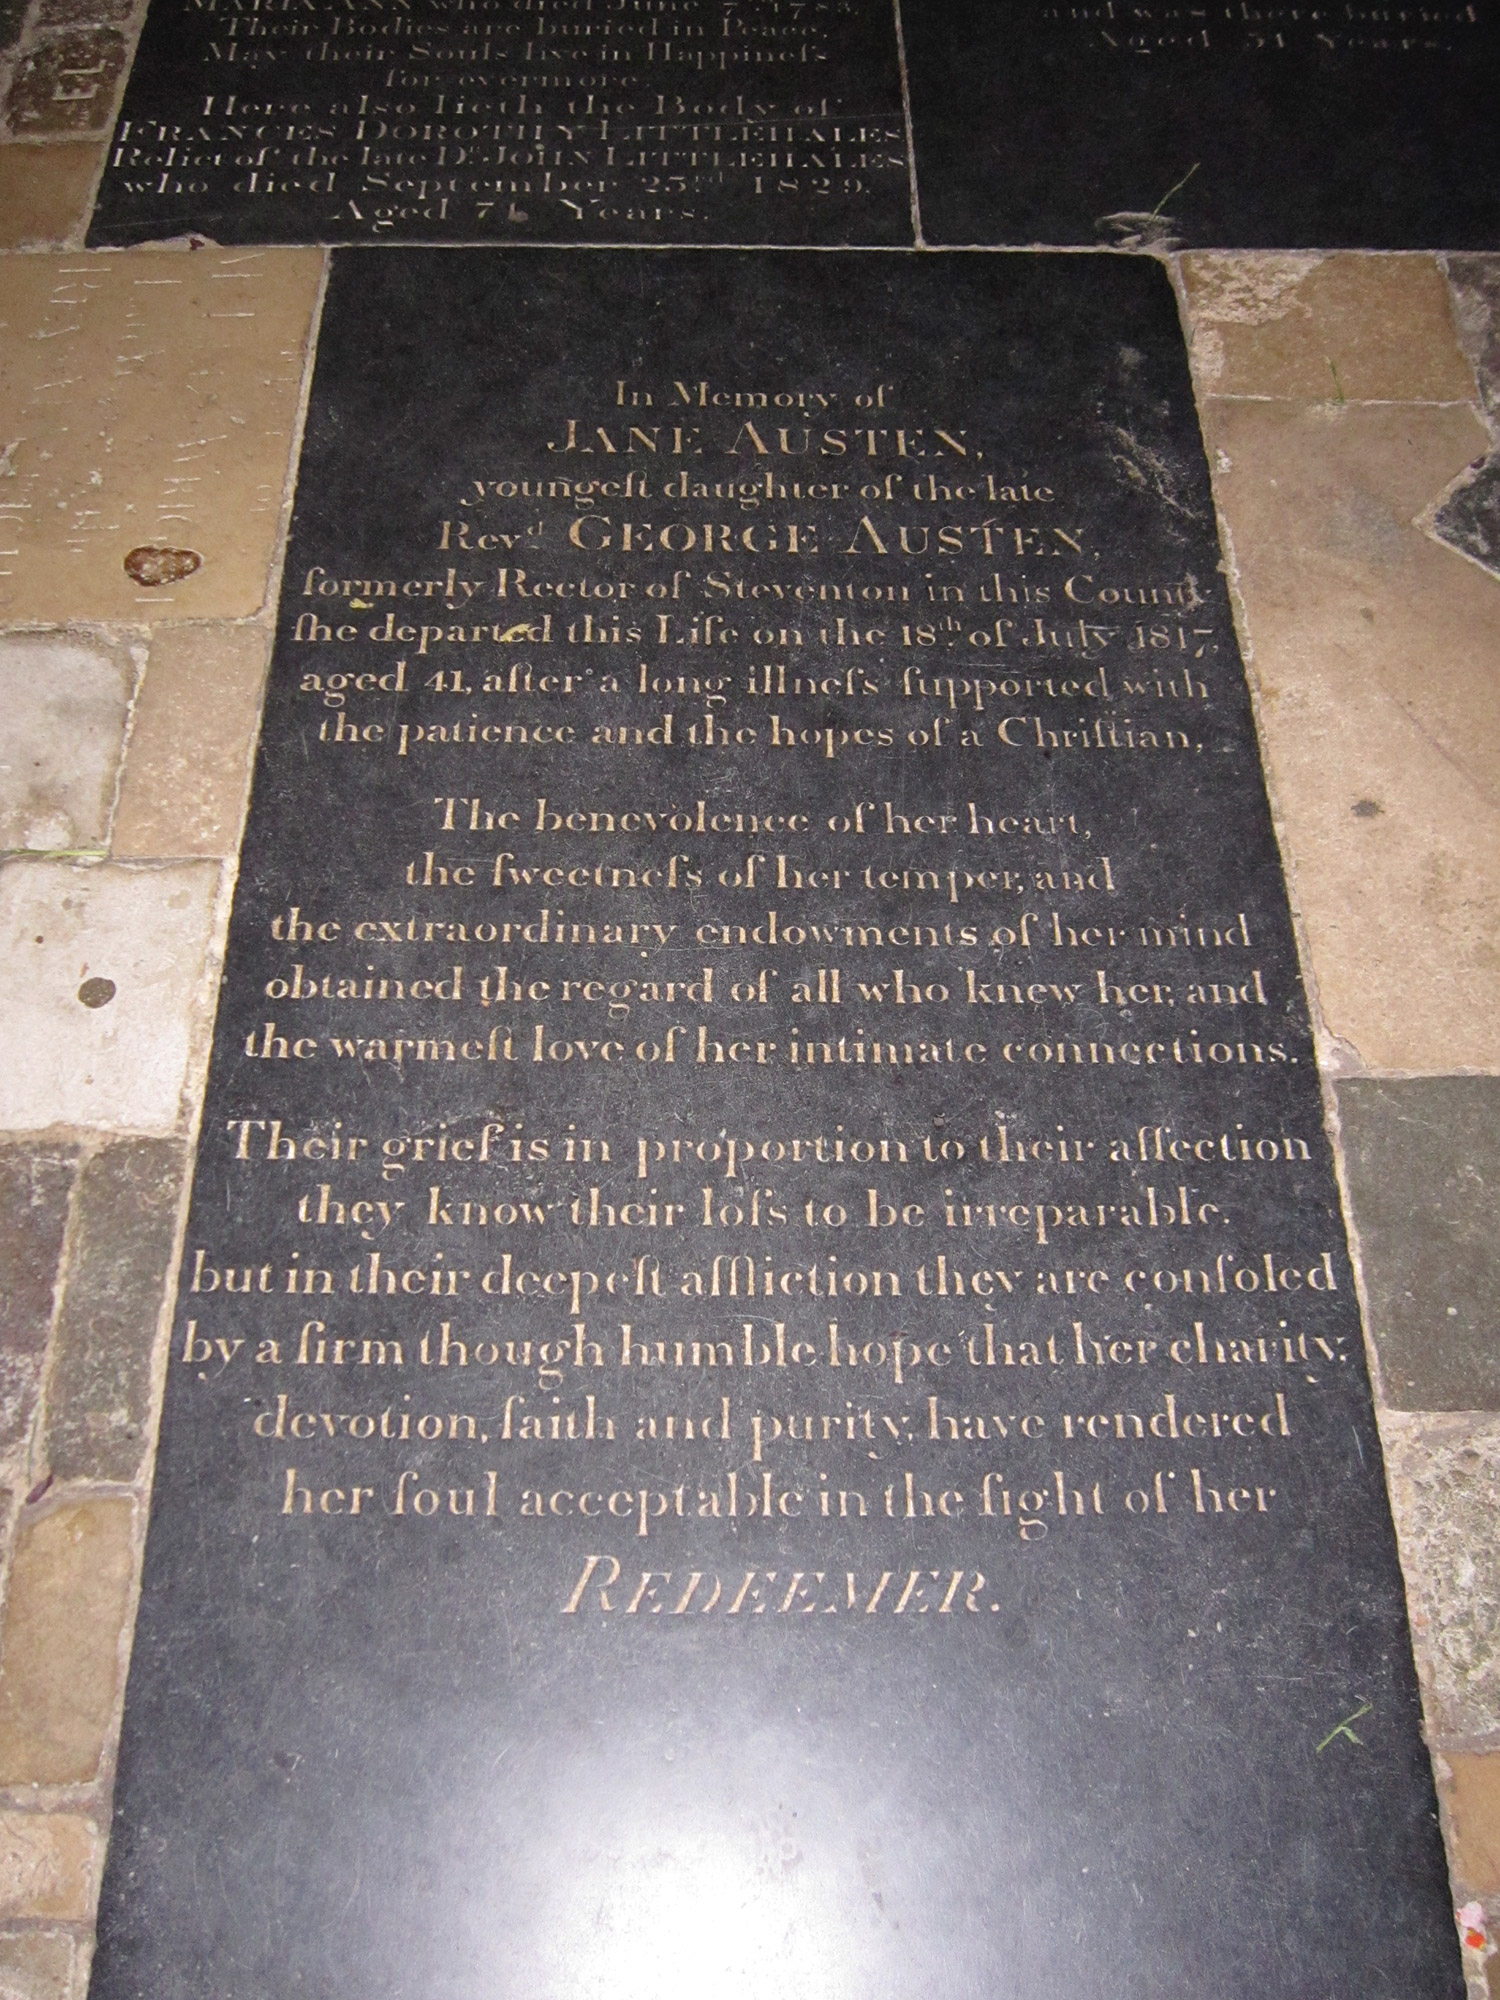 MARIA ANN who died June 7th 1783.
Their Bodies are buried in Peace.
May their Souls live in Happineſs
for evermore.
Here also lieth the Body of
FRANCES DOROTHY LITTLEHALES
Relict of the late Dr. JOHN LITTLEHALES
who died September 23rd 1829.
Aged 71 Years.
and was there buried
Aged 51 Years.
EL
In Memory of
JANE AUSTEN,
youngeſt daughter of the late
Revd GEORGE AUSTEN,
formerly Rector of Steventon in this County
ſhe departed this Life on the 18th of July 1817,
aged 41, after a long illneſs ſupported with
the patience and the hopes of a Chriſtian,
The benevolence of her heart,
the ſweetneſs of her temper, and
the extraordinary endowments of her mind
obtained the regard of all who knew her, and
the warmeſt love of her intimate connections.
Their grief is in proportion to their affection
they know their loſs to be irreparable.
but in their deepeſt affliction they are conſoled
by a firm though humble hope that her charity,
devotion, faith and purity, have rendered
her ſoul acceptable in the ſight of her
REDEEMER.